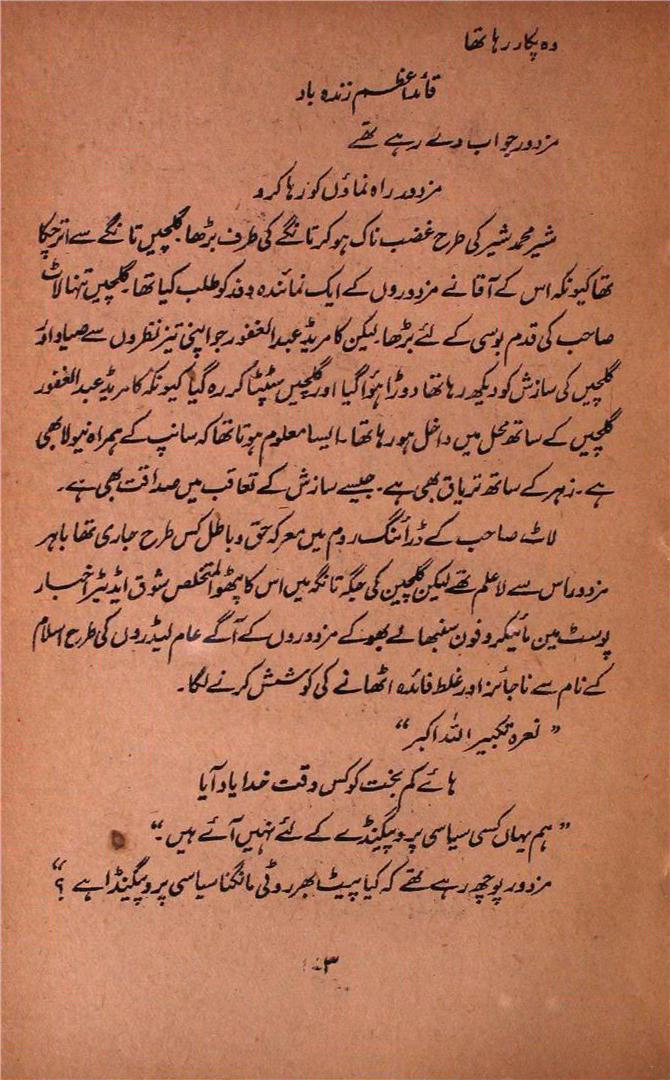 وہ پکار رہا تھا
قائداعظم زندہ باد
مزدور جواب دے رہے تھے
مزدور راہ نماؤں کو رہا کرو
شیر محمد شیر کی طرح غضب ناک ہو کر تانگے کی طرف بڑھا۔ گلچیں تانگے سے اتر چکا
تھا کیونکہ اس کے آقا نے مزدوروں کے ایک نمائندہ وفد کو طلب کیا تھا۔ گلچیں تنہا لاٹ
صاحب کی قدم بوسی کے لئے بڑھا۔ لیکن کامریڈ عبدالغفور جو اپنی تیز نظروں سے صیاد اور
گلچیں کی سازش کو دیکھ رہا تھا دوڑا ہوا گیا اور گلچیں سٹپٹا کر رہ گیا کیونکہ کامریڈ عبدالغفور
گلچیں کے ساتھ محل میں داخل ہو رہا تھا۔ ایسا معلوم ہوتا تھا کہ سانپ کے ہمراہ نیولا بھی
ہے۔ زہر کے ساتھ تریاق بھی ہے۔ جیسے سازش کے تعاقب میں صداقت بھی ہے۔
لاٹ صاحب کے ڈرائنگ روم میں معرکہ حق و باطل کس طرح جاری تھا باہر
مزدور اس سے لاعلم تھے لیکن گلچین کی جگہ تانگہ میں اس کا پٹھو المتخلص شوق ایڈیٹر اخبار
پوسٹ مین مائیکروفون سنبھالے بھوکے مزدوروں کے آگے عام لیڈروں کی طرح اسلام
کے نام سے ناجائز اور غلط فائدہ اٹھانے کی کوشش کرنے لگا۔
”نعرہ تکبیر اللہ اکبر“
ہائے کم بخت کو کس وقت خدا یاد آیا
”ہم یہاں کسی سیاسی پروپیگنڈے کے لئے نہیں آئے ہیں۔“
مزدور پوچھ رہے تھے کہ کیا پیٹ بھر روٹی مانگنا سیاسی پروپیگنڈا ہے؟“